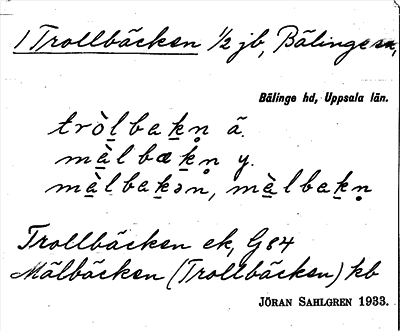 1 Trollbäcken 1/2 jb, Bälinge sn,
Bälinge hd, Uppsala län.
trò̱lbaḵn̥ ä.
mä̱̀lbæḵn̥ y.
mä̱̀lbaḵən, mä̱̀lbaḵn̥
Trollbäcken ek, G84
Mälbäcken (Trollbäcken) kb
JÖRAN SAHLGREN 1933.